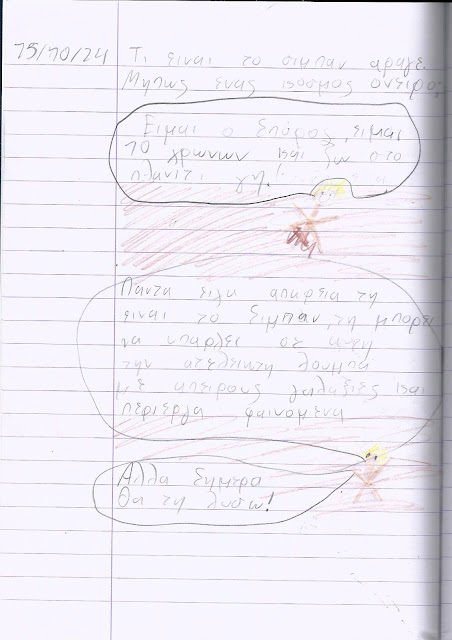 15/10/24 Τι ειναι το σιμπαν αραγε
Μηπως ενας κοσμος ονειρο;
Ειμαι ο Σπύρος, ειμαι
10 χρωνων και ζω στο
πλανιτι γη!
Παντα ειχα απαρεία τη
ειναι το Σιμπαν, τη μπορει
να υπαρχει σε αυτη
την ατελειωτη λουμπα
με απειρους γαλαξιες και
περιεργα φαινομενα
Αλλα Σημερα
Θα τη λυσω!